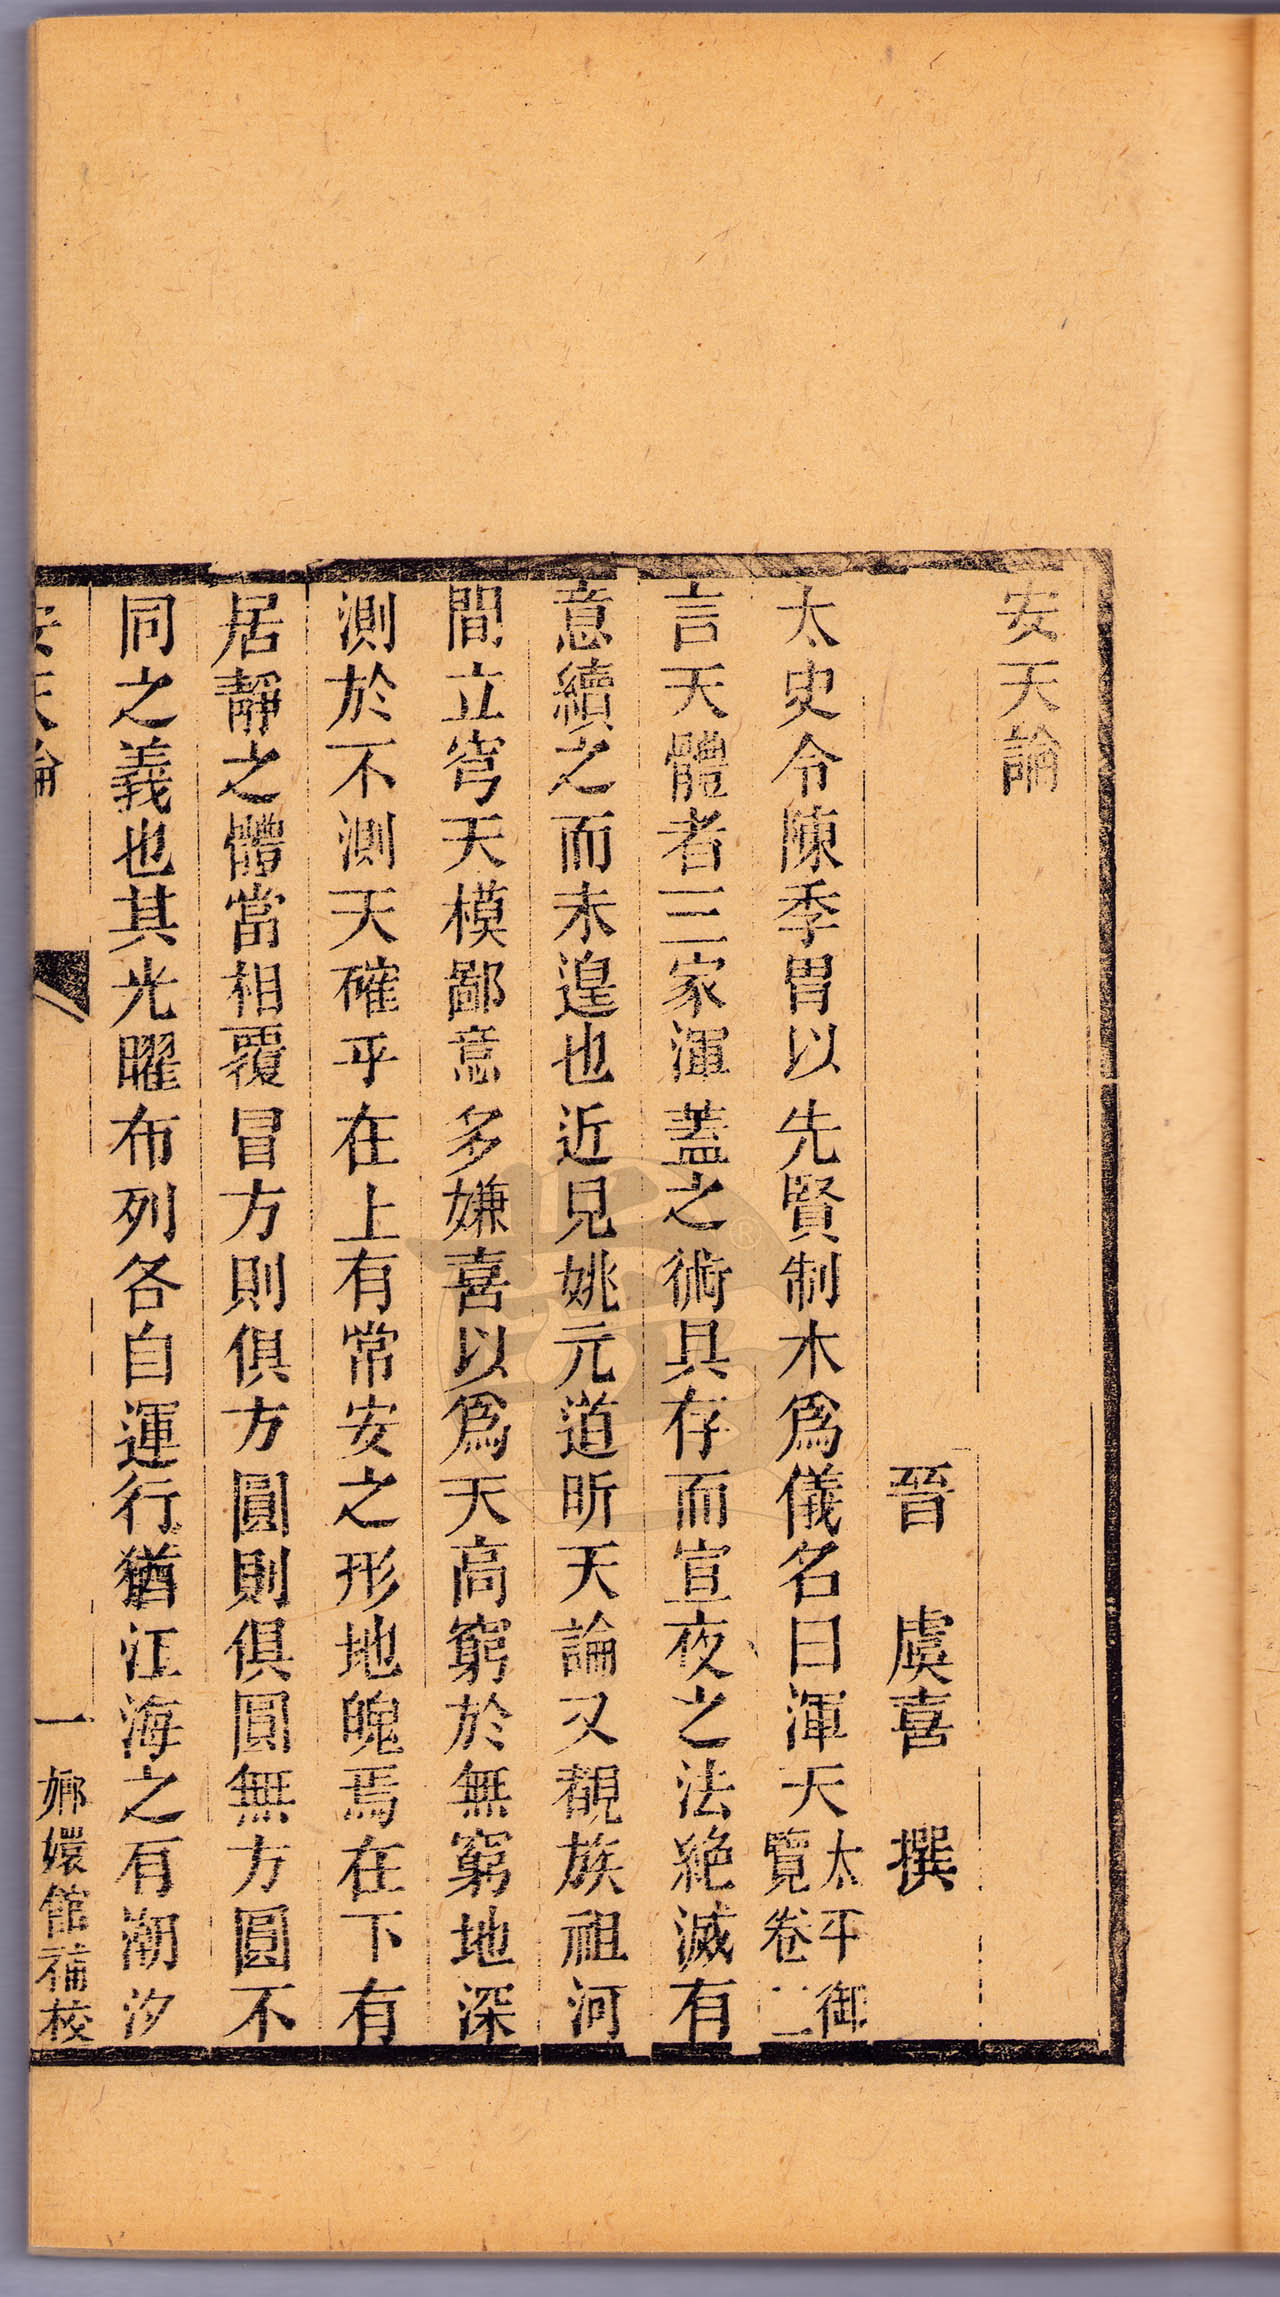 安天論
晉　虞喜　撰
太史令陳季胄以先賢制木爲儀名曰渾天太平御覽卷二
言天體者三家渾蓋之術具存而宣夜之法絕滅有
意續之而未遑也近見姚元道昕天論又覩族祖河
間立穹天模鄙意多嫌喜以爲天高窮於無窮地深
測於不測天確乎在上有常安之形地魄焉在下有
居靜之體當相覆冒方則俱方圓則俱圓無方圓不
同之義也其光曜布列各自運行猶江海之有潮汐
安天論　一　嫏嬛館補校